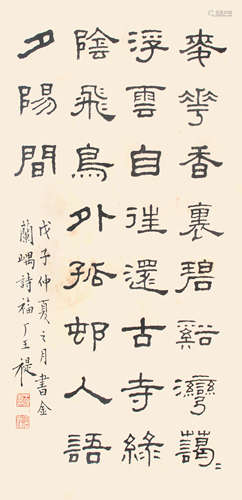 麥華香裏碧谿灣藹〻
浮雲自往還古寺綠
陰飛鳥外孤邨人語
夕陽間
戊子仲夏之月書金
蘭嵎詩福厂王禔